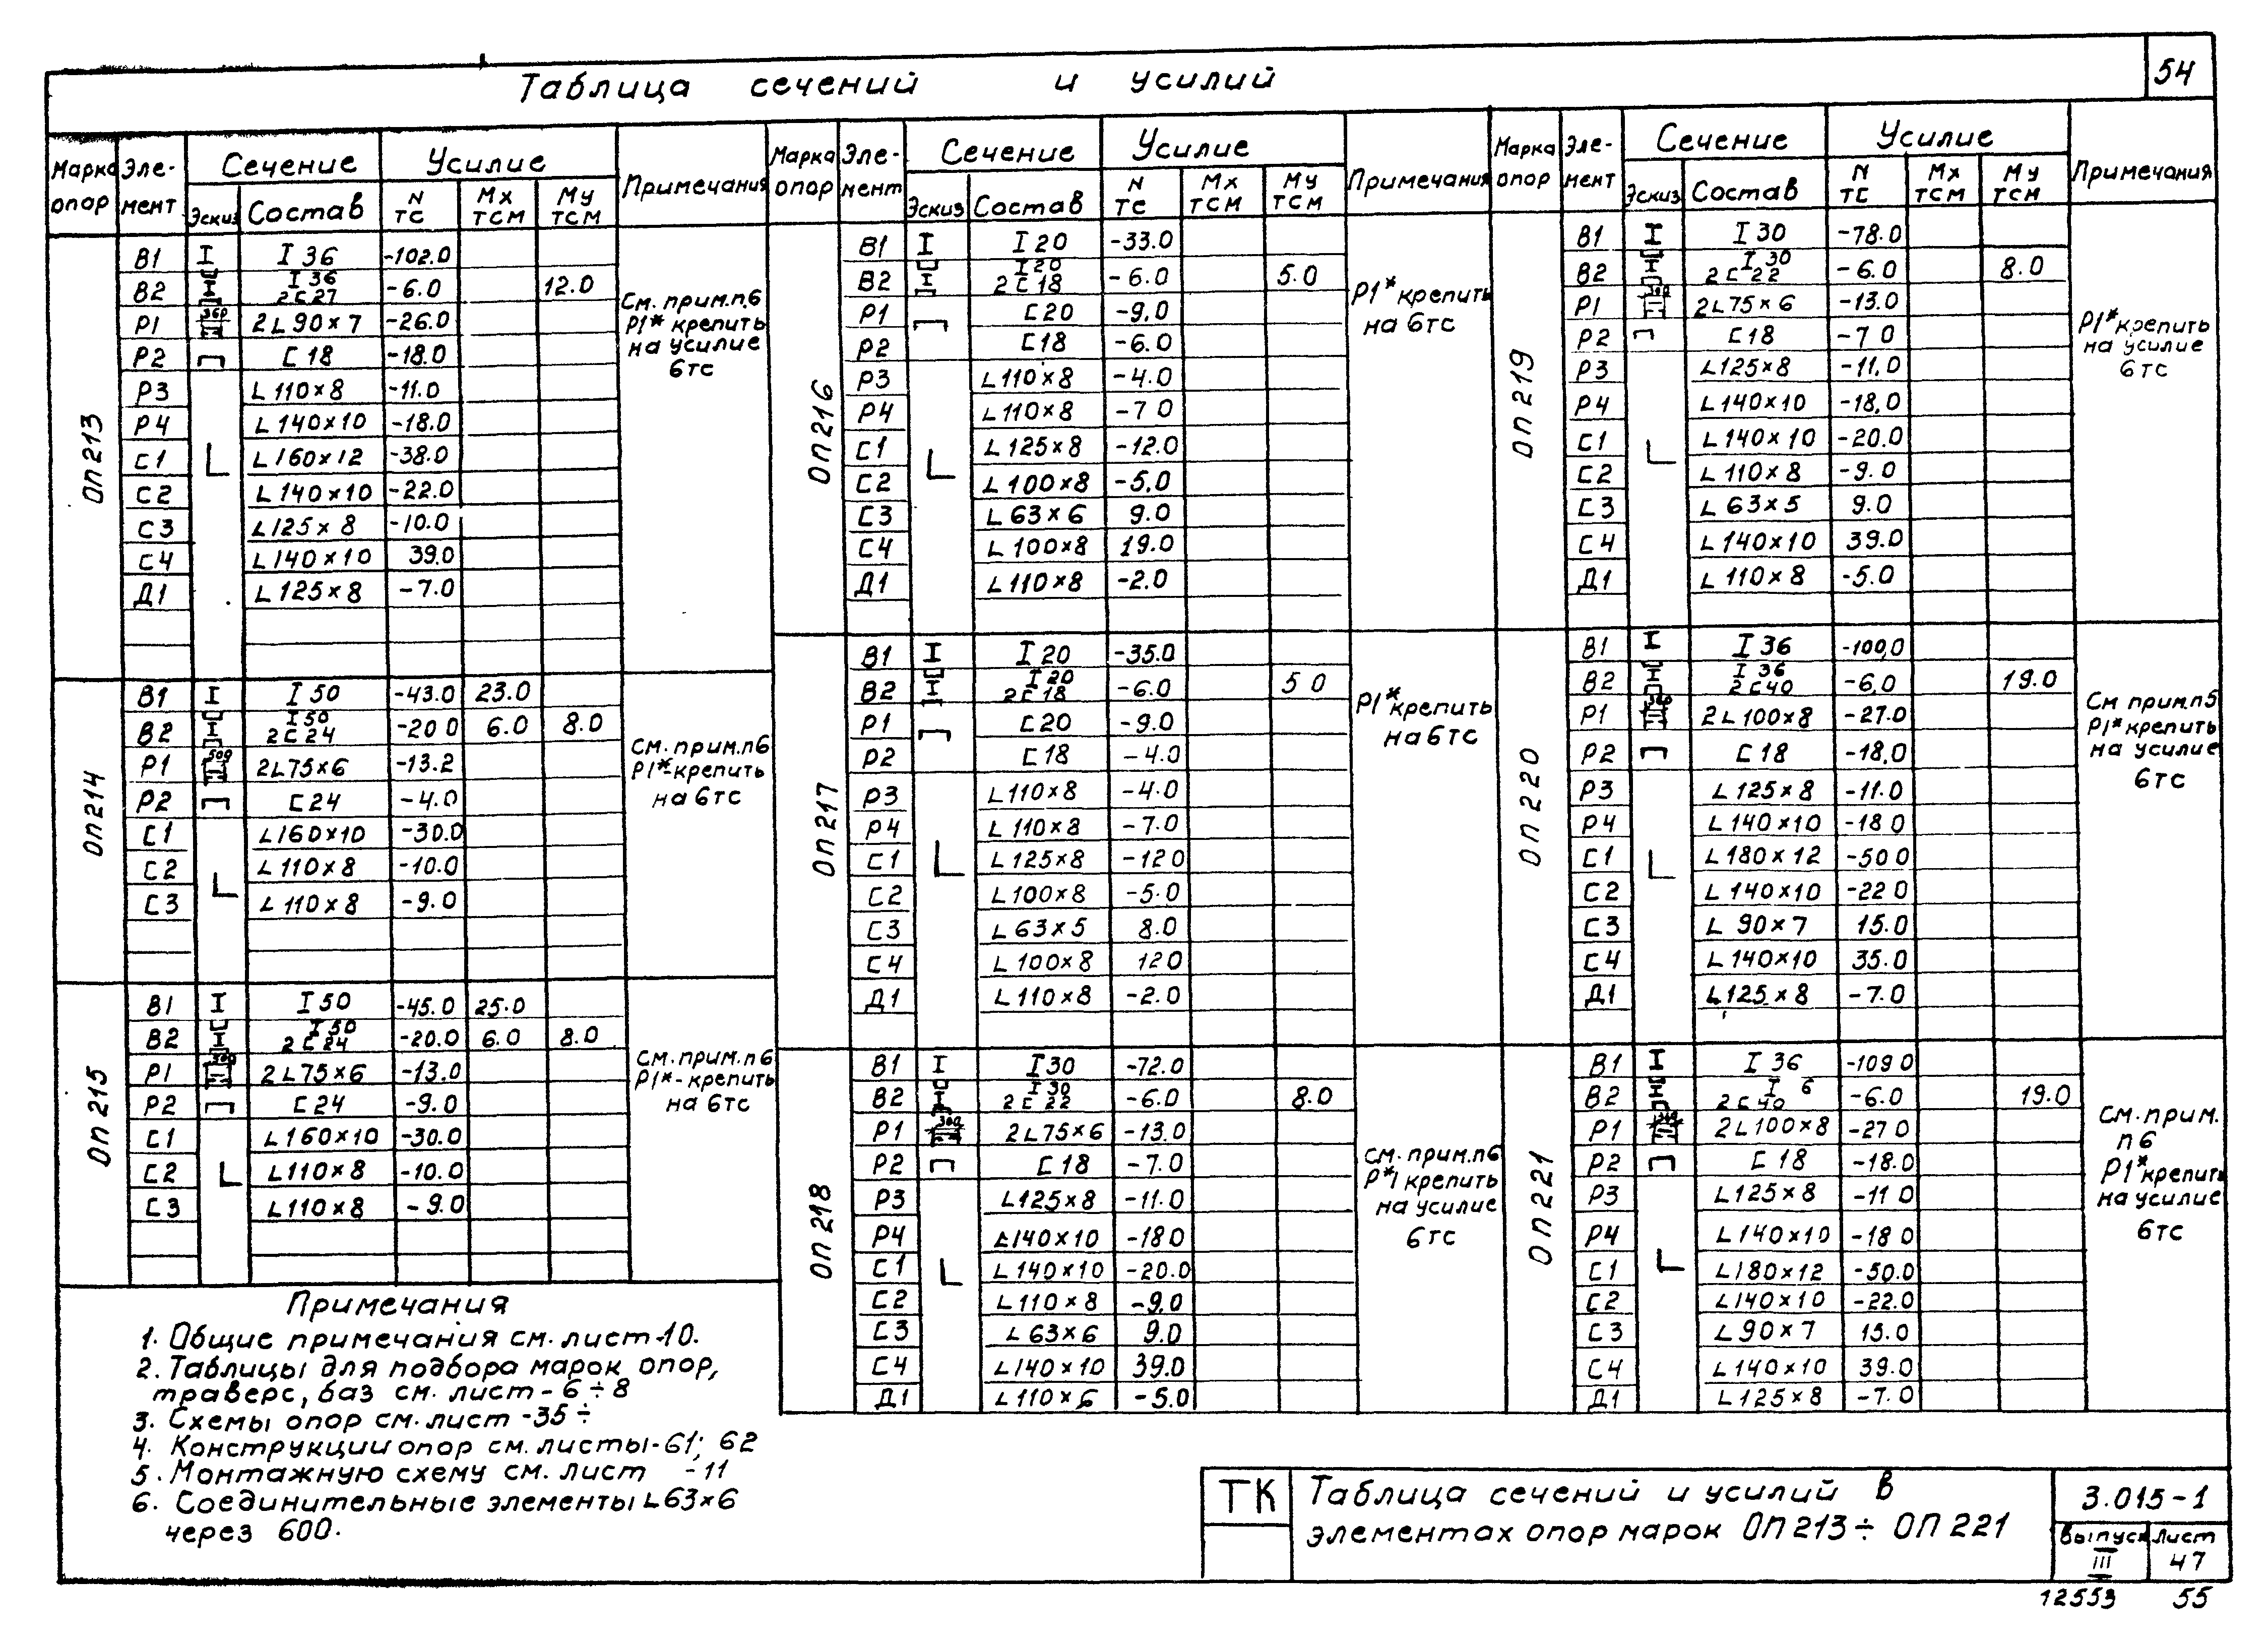 54
Таблица сечений и усилий
Марка опор Элемент Сечение Усилие Примечания
Эскиз Состав N тс Mx тсм My тсм
ОП213
В1 I 36 -102.0
В2 I 36 2С27 -6.0 12.0
Р1 360 2L90×7 -26.0
Р2 С18 -18.0
Р3 L110×8 -11.0
Р4 L140×10 -18.0
С1 L160×12 -38.0
С2 L140×10 -22.0
С3 L125×8 -10.0
С4 L140×10 39.0
Д1 L125×8 -7.0
См. прим.п.6
Р1* крепить
на усилие
6тс
ОП214
В1 I 50 -43.0 23.0
В2 I 50 2С24 -20 0 6.0 8.0
Р1 500 2L75×6 -13.2
Р2 С24 -4.0
С1 L160×10 -30.0
С2 L110×8 -10.0
С3 L110×8 -9.0
См. прим.п6
Р1*-крепить
на 6тс
ОП215
В1 I 50 -45.0 25.0
В2 I 50 2С24 -20.0 6.0 8.0
Р1 2L75×6 -13.0
Р2 С24 -9.0
С1 L160×10 -30.0
С2 L110×8 -10.0
С3 L110×8 -9.0
См. прим.п6
Р1*-крепить
на 6тс
Марка опор Элемент Сечение Усилие Примечания
Эскиз Состав N тс Mx тсм My тсм
ОП216
В1 I 20 -33.0
В2 I 20 2С18 -6.0 5.0
Р1 С20 -9.0
Р2 С18 -6.0
Р3 L110×8 -4.0
Р4 L110×8 -7 0
С1 L125×8 -12.0
С2 L100×8 -5.0
С3 L63×6 9.0
С4 L100×8 19.0
Д1 L110×8 -2.0
Р1* крепить
на 6тс
ОП217
В1 I 20 -35.0
В2 I 20 2С18 -6.0 5 0
Р1 С20 -9.0
Р2 С18 -4.0
Р3 L110×8 -4.0
Р4 L110×8 -7.0
С1 L125×8 -12 0
С2 L100×8 -5.0
С3 L63×5 8.0
С4 L100×8 12 0
Д1 L110×8 -2.0
Р1* крепить
на 6тс
ОП218
В1 I 30 -72.0
В2 I 30 2С22 -6.0 8.0
Р1 300 2L75×6 -13.0
Р2 С18 -7.0
Р3 L125×8 -11.0
Р4 L140×10 -18 0
С1 L140×10 -20.0
С2 L110×8 -9.0
С3 L63×6 9.0
С4 L140×10 39.0
Д1 L110×6 -5.0
См. прим.п6
Р*1 крепить
на усилие
6тс
Марка опор Элемент Сечение Усилие Примечания
Эскиз Состав N тс Mx тсм My тсм
ОП219
В1 I 30 -78.0
В2 I 30 2С22 -6.0 8.0
Р1 300 2L75×6 -13.0
Р2 С18 -7 0
Р3 L125×8 -11.0
Р4 L140×10 -18.0
С1 L140×10 -20.0
С2 L110×8 -9.0
С3 L63×5 9.0
С4 L140×10 39.0
Д1 L110×8 -5.0
Р1* крепить
на усилие
6тс
ОП220
В1 I 36 -100,0
В2 I 36 2С40 -6,0 19.0
Р1 360 2L100×8 -27.0
Р2 С18 -18,0
Р3 L125×8 -11.0
Р4 L140×10 -18 0
С1 L180×12 -50 0
С2 L140×10 -22 0
С3 L90×7 15.0
С4 L140×10 35.0
Д1 L125×8 -7.0
См прим.п5
Р1* крепить
на усилие
6тс
ОП221
В1 I 36 -109 0
В2 I 6 2С40 -6.0 19.0
Р1 360 2L100×8 -27 0
Р2 С18 -18.0
Р3 L125×8 -11 0
Р4 L140×10 -18 0
С1 L180×12 -50.0
С2 L140×10 -22.0
С3 L90×7 15.0
С4 L140×10 39.0
Д1 L125×8 -7.0
См. прим.
п6
Р1* крепить
на усилие
6тс
Примечания
1. Общие примечания см. лист-10.
2. Таблицы для подбора марок опор,
траверс, баз см. лист - 6÷8
3. Схемы опор см. лист -35÷
4. Конструкции опор см. листы-61; 62
5. Монтажную схему см. лист -11
6. Соединительные элементы L63×6
через 600.
ТК
Таблица сечений и усилий в
элементах опор марок ОП213÷ ОП221
3.015-1
выпуск лист
III 47
12553 55